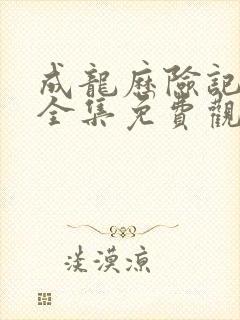 成龍歷險記
全集免費觀
淡漠涼